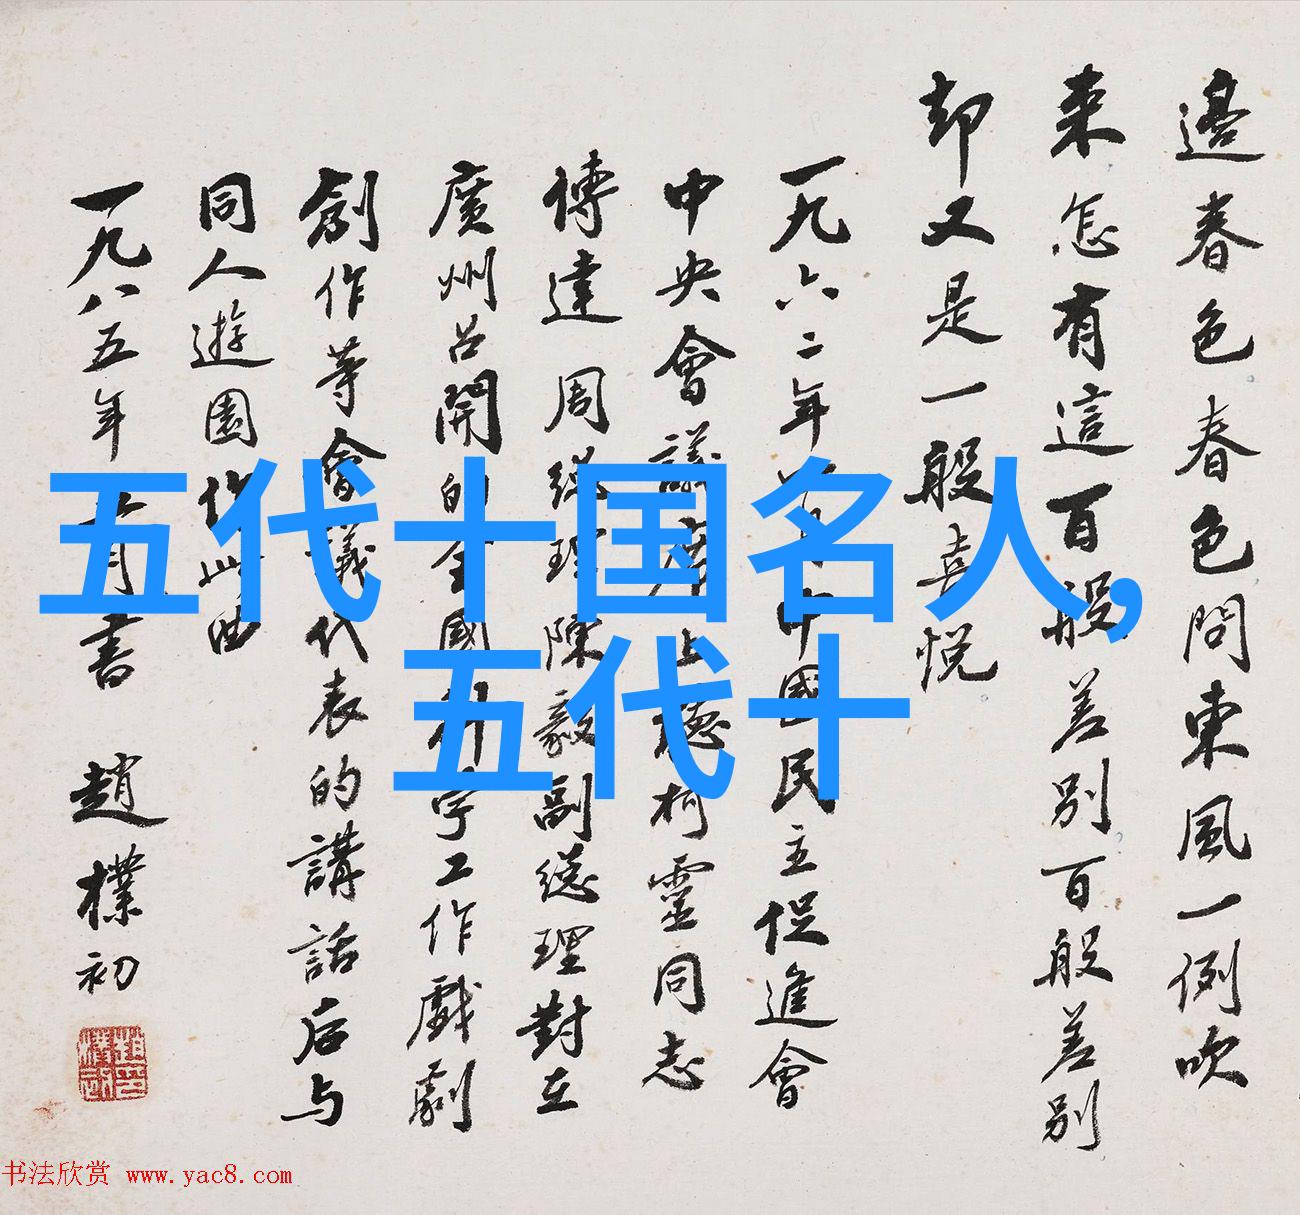 邊春色春色問東風一例吹
来怎有這百般差別百般差別
却又是一般喜悦
一九六二年中國民主促進會
中央會議席上聽柯靈同志
傳達周總理陳毅副總理對在
廣州召開的全國科学工作戲劇
創作等會議代表的講話后与
同人遊園作此曲
一九八五年月書 趙樸初
五代十国名人,
五代十
书法欣赏 www.yac8.com